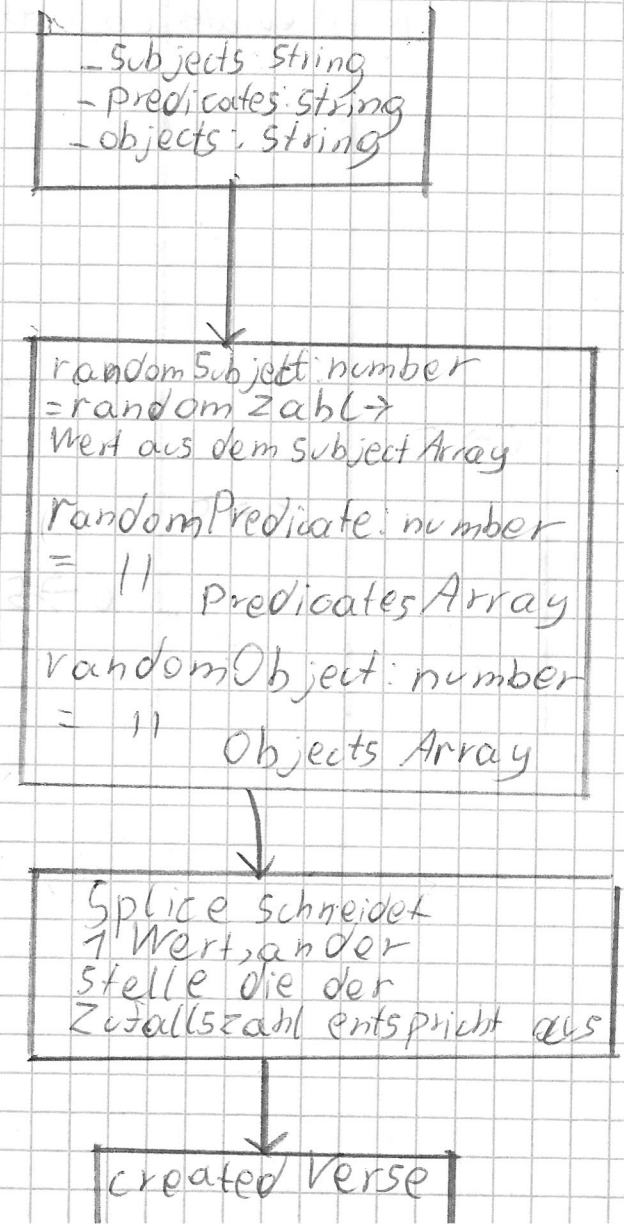 - Subjects String
- Predicates: String
- objects: String
randomSubject: number
= random Zahl →
Wert aus dem Subject Array
randomPredicate: number
= " Predicates Array
randomObject: number
= " Objects Array
Splice schneidet
1 Wert, an der
Stelle die der
Zufallszahl entspricht aus
created Verse